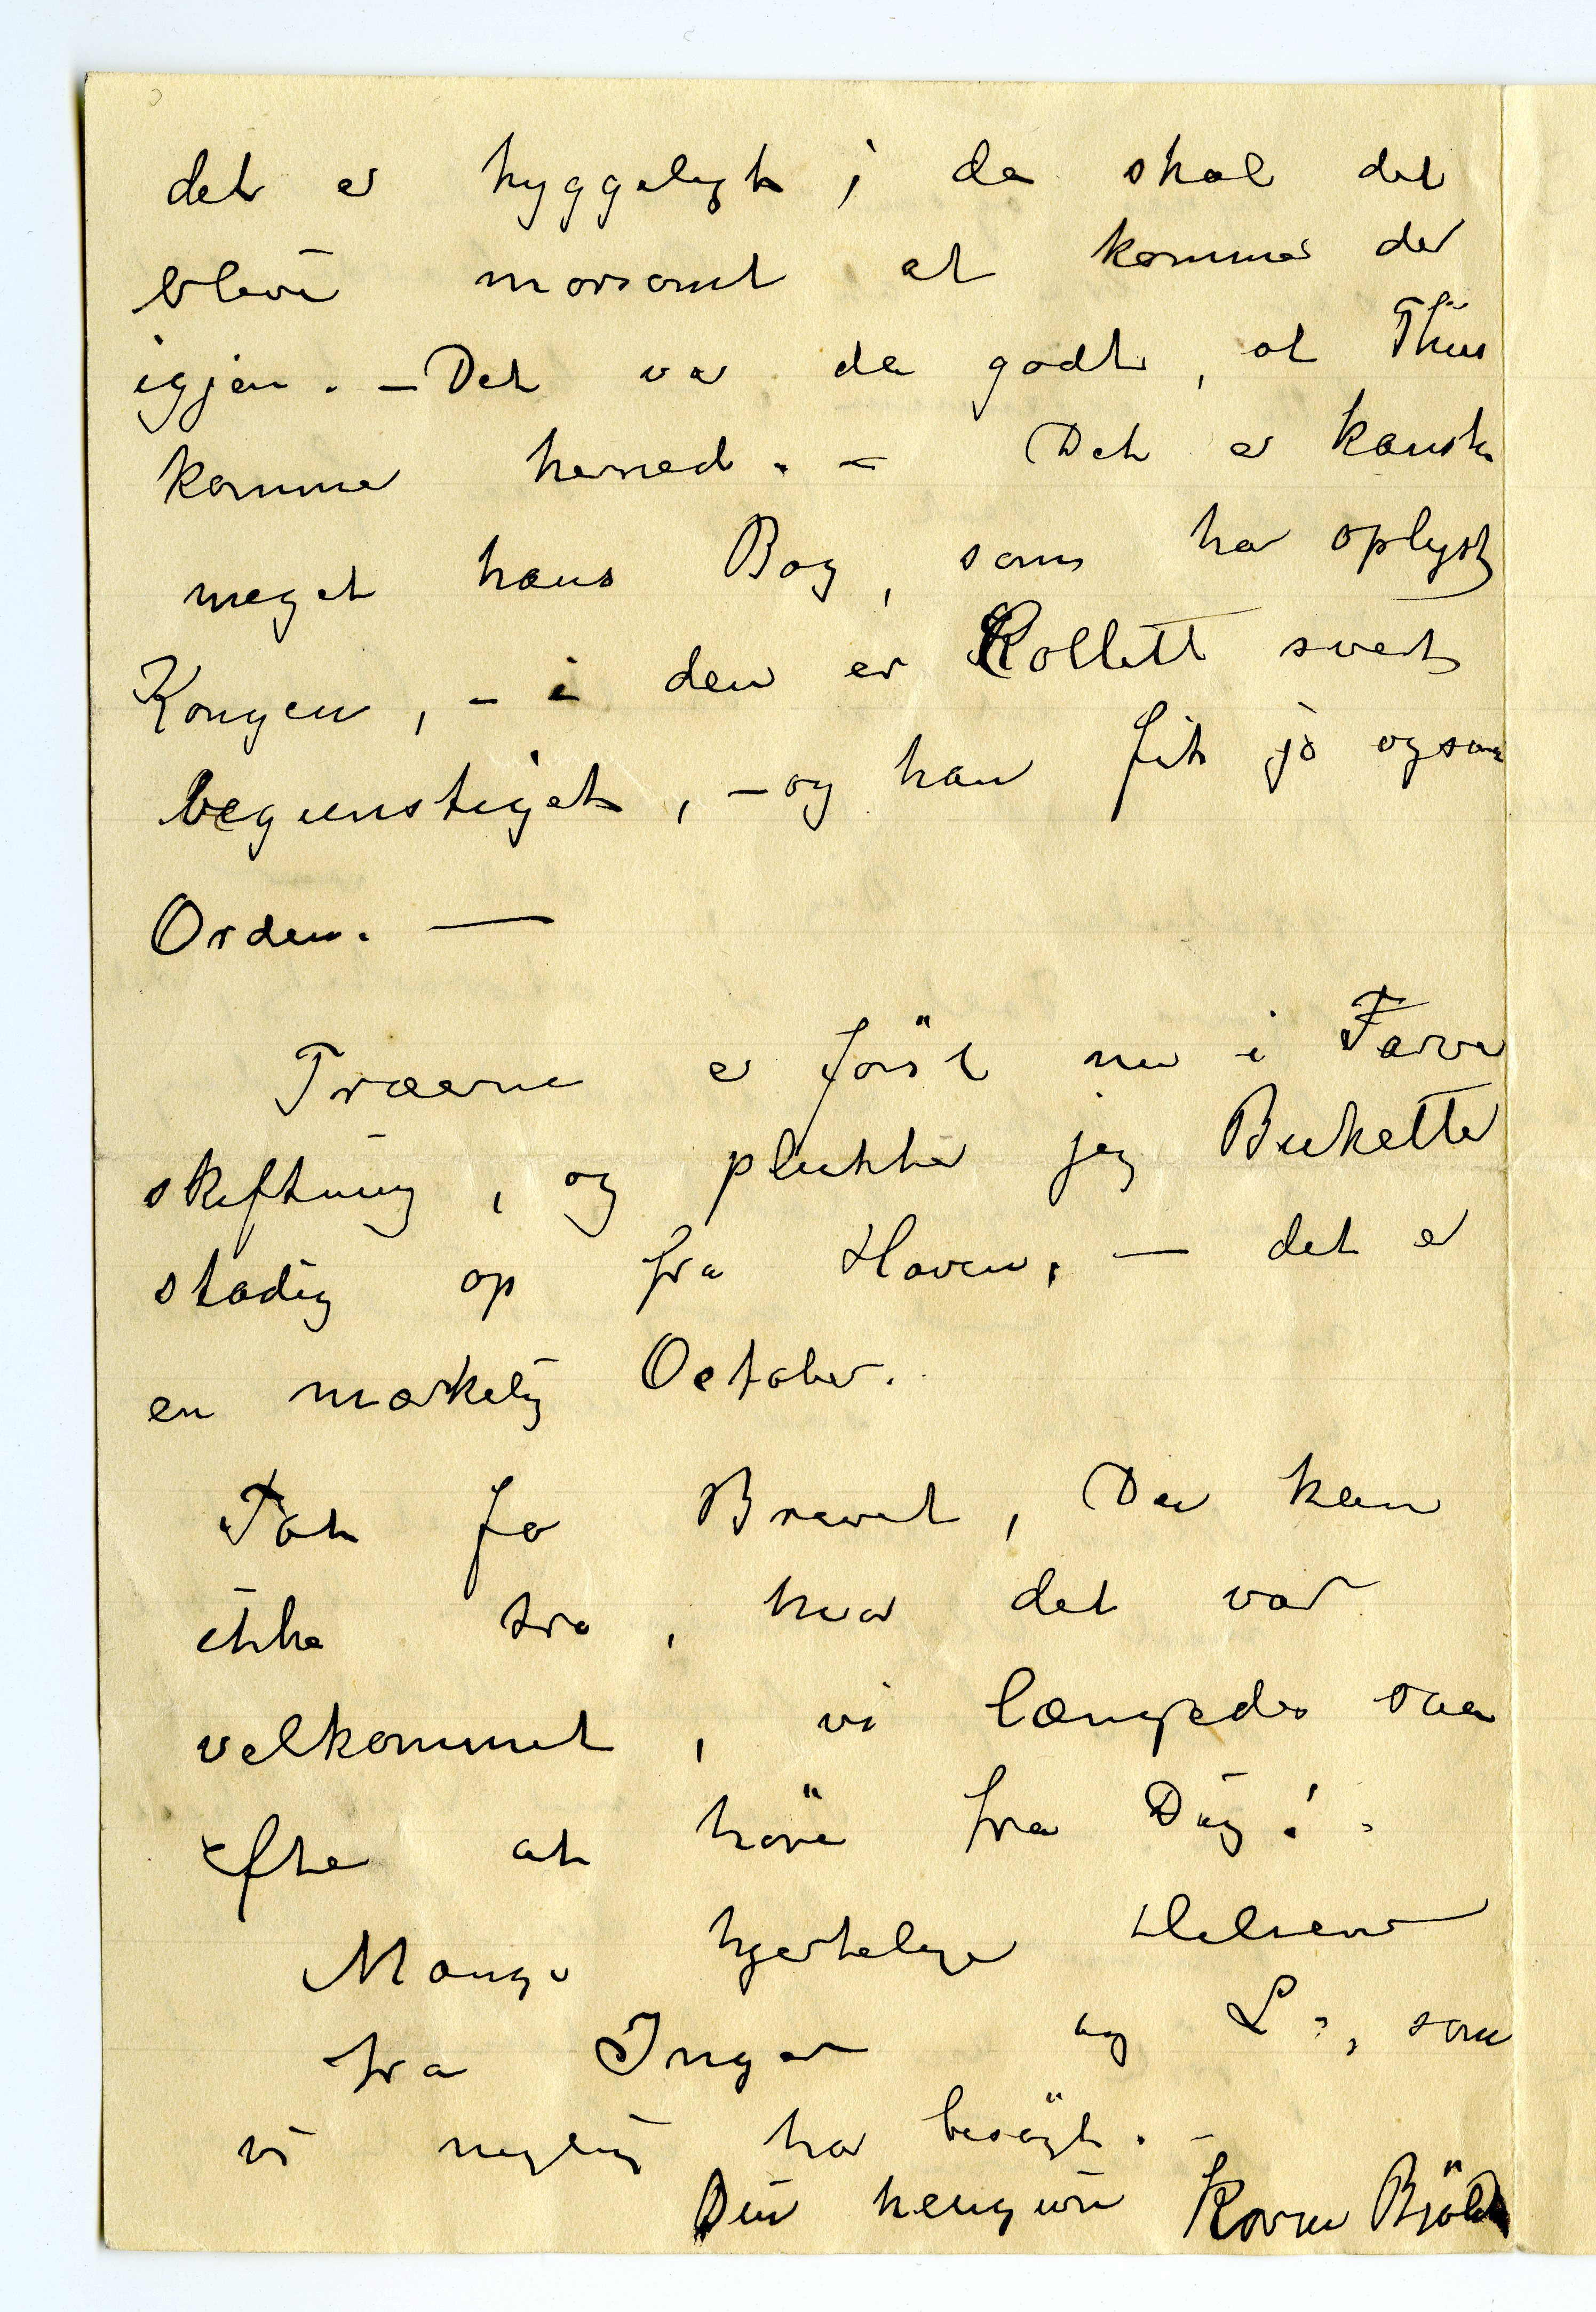 det er hyggeligt; da skal det
blive morsomt at komme der
igjen. — Det var da godt, at Thiis
kommer herned. — Det er kanske
meget hans Bog, som har oplyst
Kongen, — i den er Kollett svært
begunstiget, — og han fik jo ogsaa
Orden. —
Træerne er först nu i Farve
skiftning, og plukker jeg Buketter
stadig op fra Haven, — det er
en mærkelig October.
Tak for Brevet, Du kan
ikke tro, hvor det var
velkomment, vi længedes saa
efter at höre fra Dig!
Mange hjertelige Hilsener
fra Inga og L:, som
vi nylig har besögt. —
Din hengivne Karen Bjölst